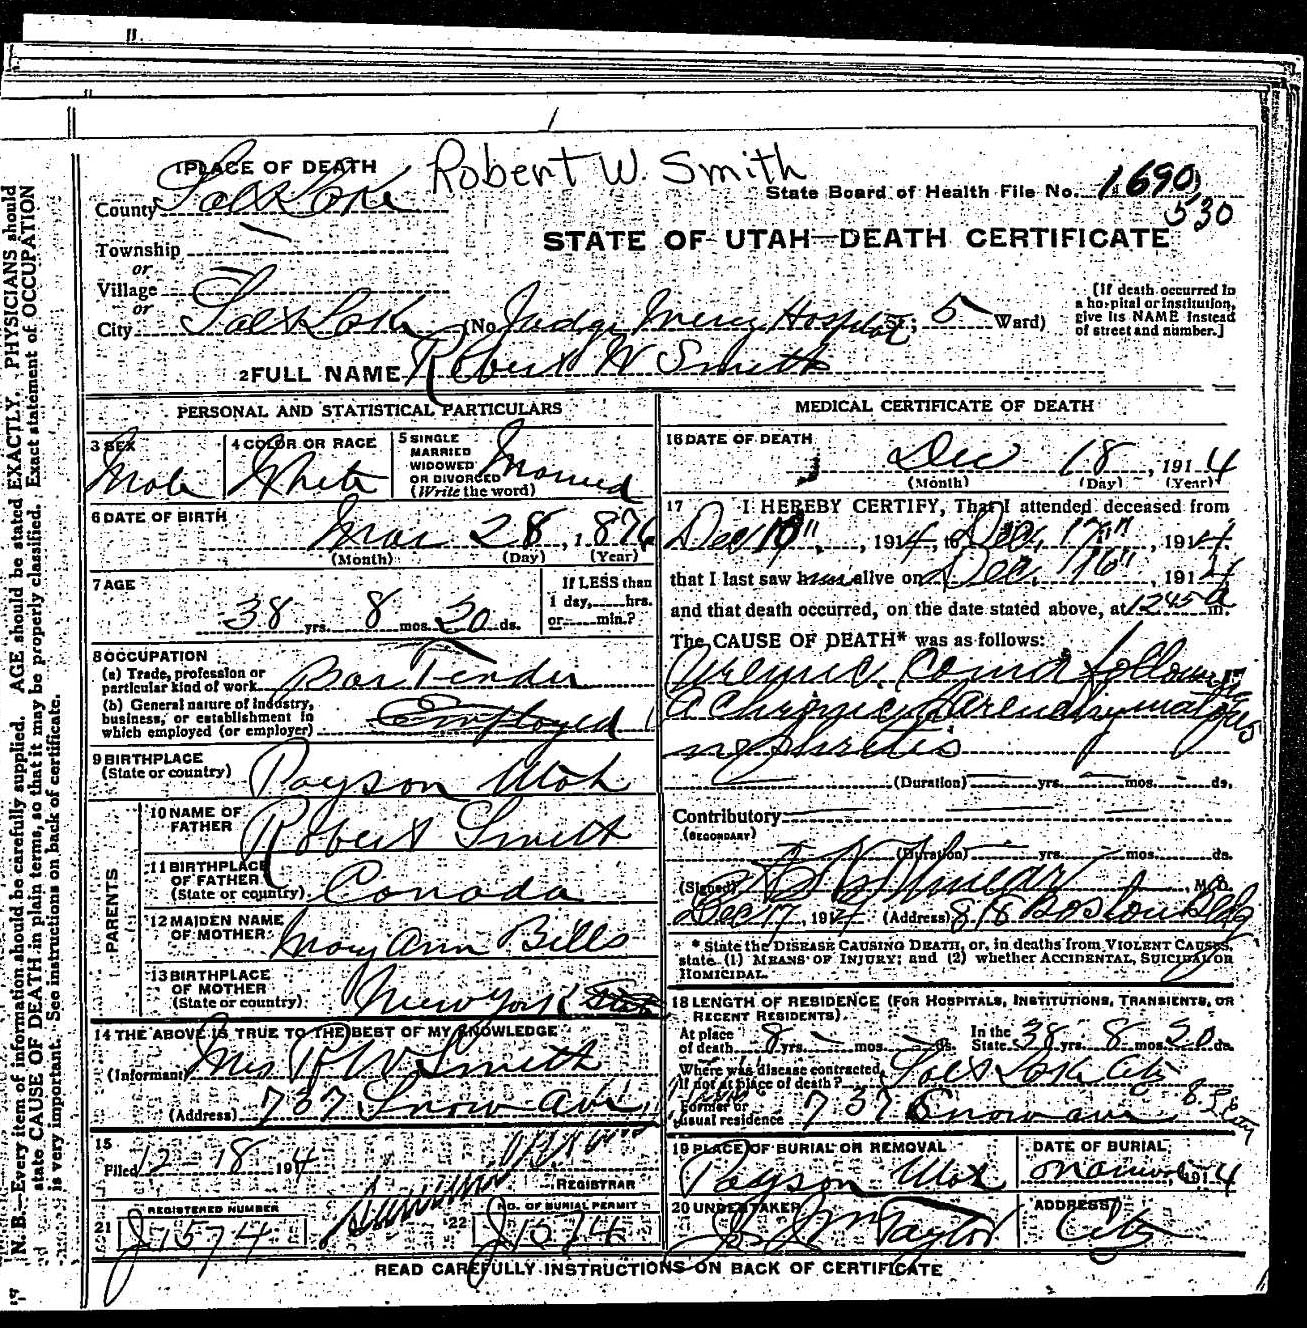 1 PLACE OF DEATH
Robert W. Smith
County Salt Lake
State Board of Health File No. 1690
530
Township
STATE OF UTAH—DEATH CERTIFICATE
or
Village
or
City Salt Lake (No. Judge Mercy Hospital St; 5 Ward)
[If death occurred in
a hospital or institution,
give its NAME instead
of street and number.]
2 FULL NAME Robert W Smith
PERSONAL AND STATISTICAL PARTICULARS
3 SEX
Male
4 COLOR OR RACE
White
5 SINGLE
MARRIED
WIDOWED
OR DIVORCED
(Write the word)
Married
6 DATE OF BIRTH
Mar 28, 1876
(Month) (Day) (Year)
7 AGE
38 yrs. 8 mos. 20 ds.
If LESS than
1 day, hrs.
or min.?
8 OCCUPATION
(a) Trade, profession or
particular kind of work Bar Tender
(b) General nature of industry,
business, or establishment in
which employed (or employer) Employed
9 BIRTHPLACE
(State or country) Payson Utah
PARENTS
10 NAME OF
FATHER Robert Smith
11 BIRTHPLACE
OF FATHER
(State or country) Canada
12 MAIDEN NAME
OF MOTHER Mary Ann Bills
13 BIRTHPLACE
OF MOTHER
(State or country) New York
14 THE ABOVE IS TRUE TO THE BEST OF MY KNOWLEDGE
(Informant) Mrs R W Smith
(Address) 737 Snow Ave
15
Filed 12-18 1914
REGISTRAR
REGISTERED NUMBER
21 J1574
NO. OF BURIAL PERMIT
22 J1574
MEDICAL CERTIFICATE OF DEATH
16 DATE OF DEATH
Dec 18, 1914
(Month) (Day) (Year)
17 I HEREBY CERTIFY, That I attended deceased from
Dec 10", 1914, to Dec, 17", 1914
that I last saw him alive on Dec, 16", 1914
and that death occurred, on the date stated above, at 1245 a m.
The CAUSE OF DEATH* was as follows:
Uremic Coma following
a Chronic Parenchymatous
nephritis
(Duration) yrs. mos. ds.
Contributory
(SECONDARY)
(Duration) yrs. mos. ds.
(Signed) M. D.
Dec 17, 1914 (Address) 818 Boston Bldg
* State the DISEASE CAUSING DEATH, or, in deaths from VIOLENT CAUSES,
state (1) MEANS OF INJURY; and (2) whether ACCIDENTAL, SUICIDAL OR
HOMICIDAL.
18 LENGTH OF RESIDENCE (FOR HOSPITALS, INSTITUTIONS, TRANSIENTS, OR
RECENT RESIDENTS).
At place
of death 8 yrs. mos. ds.
In the
State 38 yrs. 8 mos. 20 ds.
Where was disease contracted,
If not at place of death? Salt Lake City
Former or
usual residence 737 Snow ave
19 PLACE OF BURIAL OR REMOVAL
Payson Utah
DATE OF BURIAL
1914
20 UNDERTAKER
Taylor
ADDRESS
City
READ CAREFULLY INSTRUCTIONS ON BACK OF CERTIFICATE
N. B.—Every item of information should be carefully supplied. AGE should be stated EXACTLY. PHYSICIANS should
state CAUSE OF DEATH in plain terms, so that it may be properly classified. Exact statement of OCCUPATION
is very important. See instructions on back of certificate.